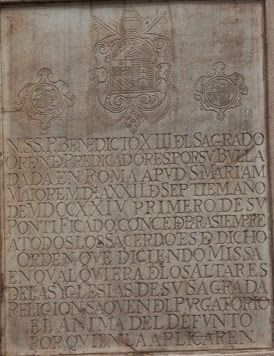 N.SS.P.BENEDICTO XIII DEL SAGRADO
ORDEN D PREDICADORES POR SV BVLLA
DADA EN ROMA APVD S. MARIAM
MAIOREM DIA XXII D SEPTIEM ANO
DE MDCCXXIV PRIMERO DE SV
PONTIFICADO CONCEDE PARA SIEMPRE
A TODOS LOS SACERDOTES D DICHO
ORDEN, QVE DICIENDO MISSA
EN QVALQVIERA D LOS ALTARES
DE LAS YGLESIAS DE SV SAGRADA
RELIGION SAQVEN DL PVRGATORIO
EL ANIMA DEL DEFVNTO
POR QVIEN LA APLICAREN